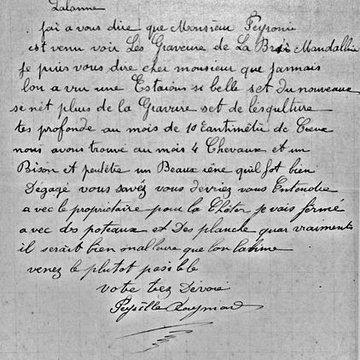 Lalanne
jai a vous dire que Monsieur Peyronie
est venu voir Les Graveure de La
je puis vous dire cher monsieur que jarmais
lon a vue une Estation si belle set du nouveaux
se nèt plus de la Gravure set de lesqulture
tes profonde au mois de 10 de Creuse
nous avons trouve au mois 4 Chevaux et un
Bison et peutetre un Beaux rène quil fot bien
Degagé vous savez vous devriez vous Entendre
avec le propriétaire pour la je vais fermé
avec des poteaux et Des planche quar vraiments
il serait bien malleure que lon labime
venez le plutot posible
votre trez Devoué
Peyrille Raymond